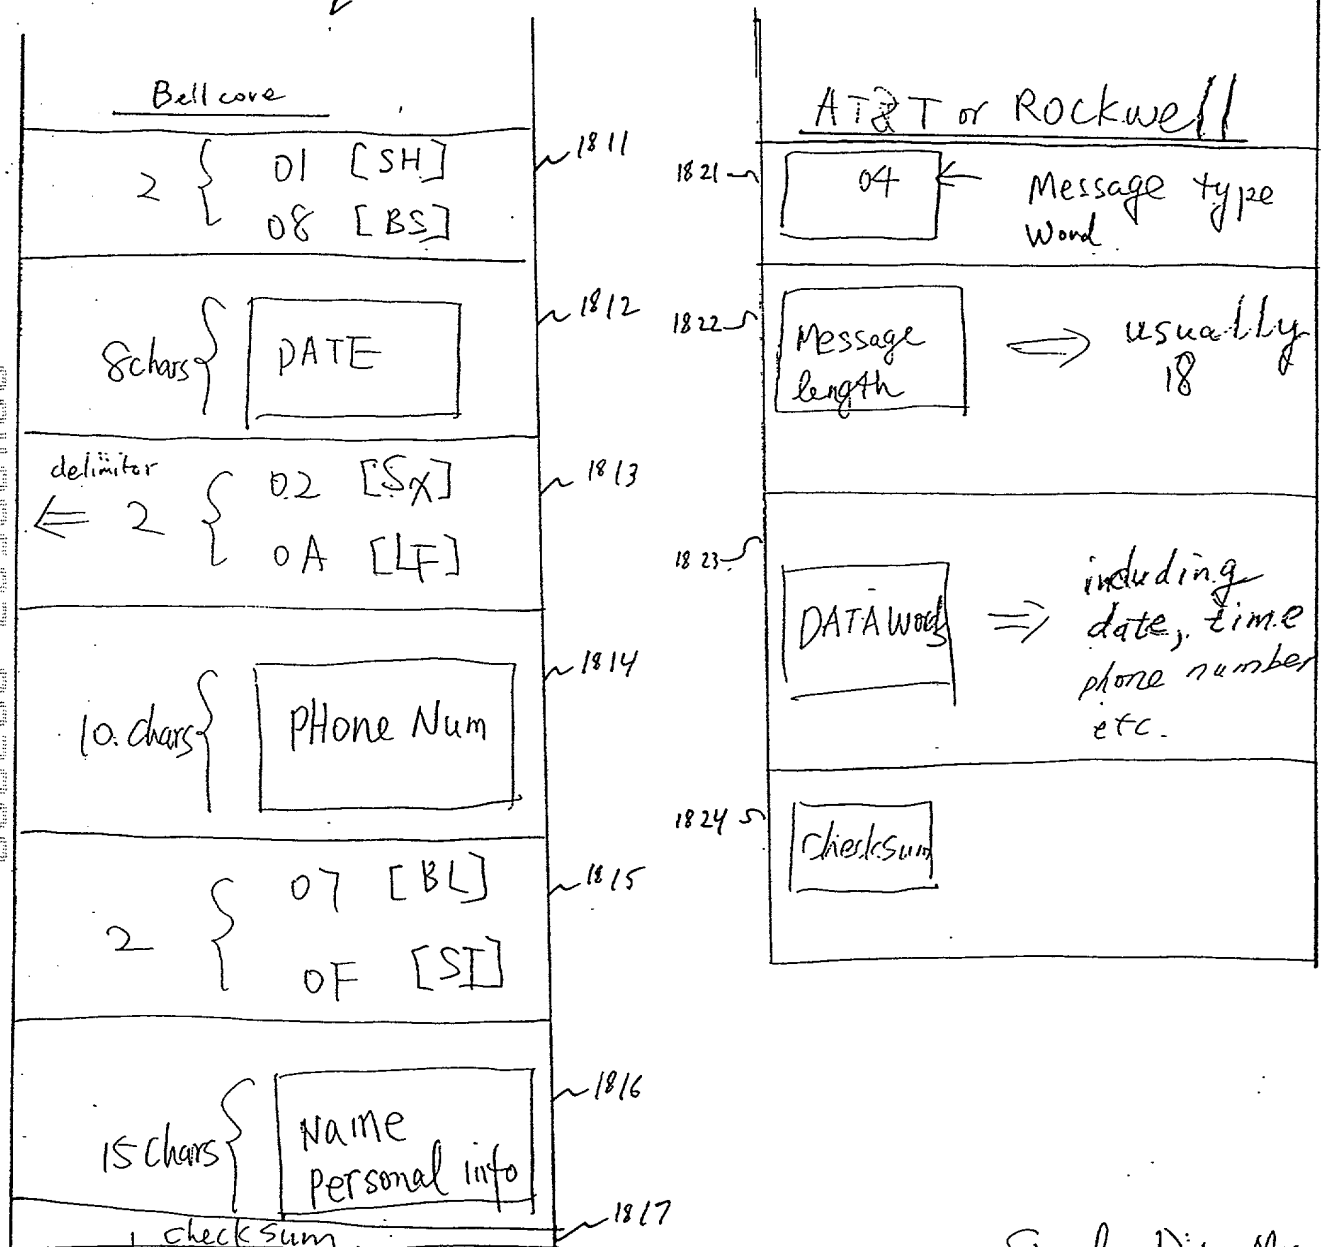 Bellcore
2 { 01 [SH] 1811
08 [BS]
8chars { DATE 1812
delimitor
⇐ 2 { 02 [SX] 1813
0A [LF]
10. Chars { PHone Num 1814
2 { 07 [BL] 1815
0F [SI]
15 Chars { Name 1816
personal info
1 checksum 1817
AT&T or Rockwell
1821 04 ← Message type
Word
1822 Message ⇒ usually
length 18
1823 DATA Words ⇒ including
date, time
phone number
etc.
1824 checksum